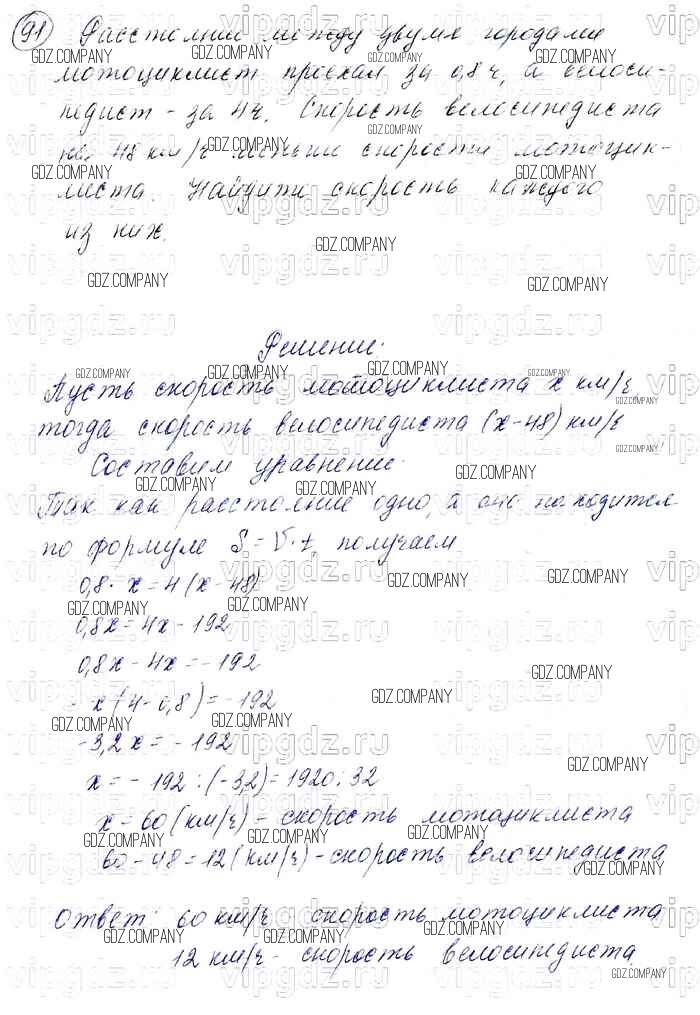 91 Расстояние между двумя городами
мотоциклист проехал за 0,8 ч, а велоси-
педист - за 4 ч. Скорость велосипедиста
на 48 км/ч меньше скорости мотоцик-
листа. Найдите скорость каждого
из них.
Решение:
Пусть скорость мотоциклиста x км/ч,
тогда скорость велосипедиста (x-48) км/ч
Составим уравнение:
Так как расстояние одно, а оно находится
по формуле S = V·t, получаем
0,8·x = 4(x-48)
0,8x = 4x - 192
0,8x - 4x = -192
- x(4-0,8) = -192
-3,2x = -192
x = -192 : (-3,2) = 1920 : 32
x = 60 (км/ч) - скорость мотоциклиста
60 - 48 = 12 (км/ч) - скорость велосипедиста
Ответ: 60 км/ч скорость мотоциклиста
12 км/ч - скорость велосипедиста.